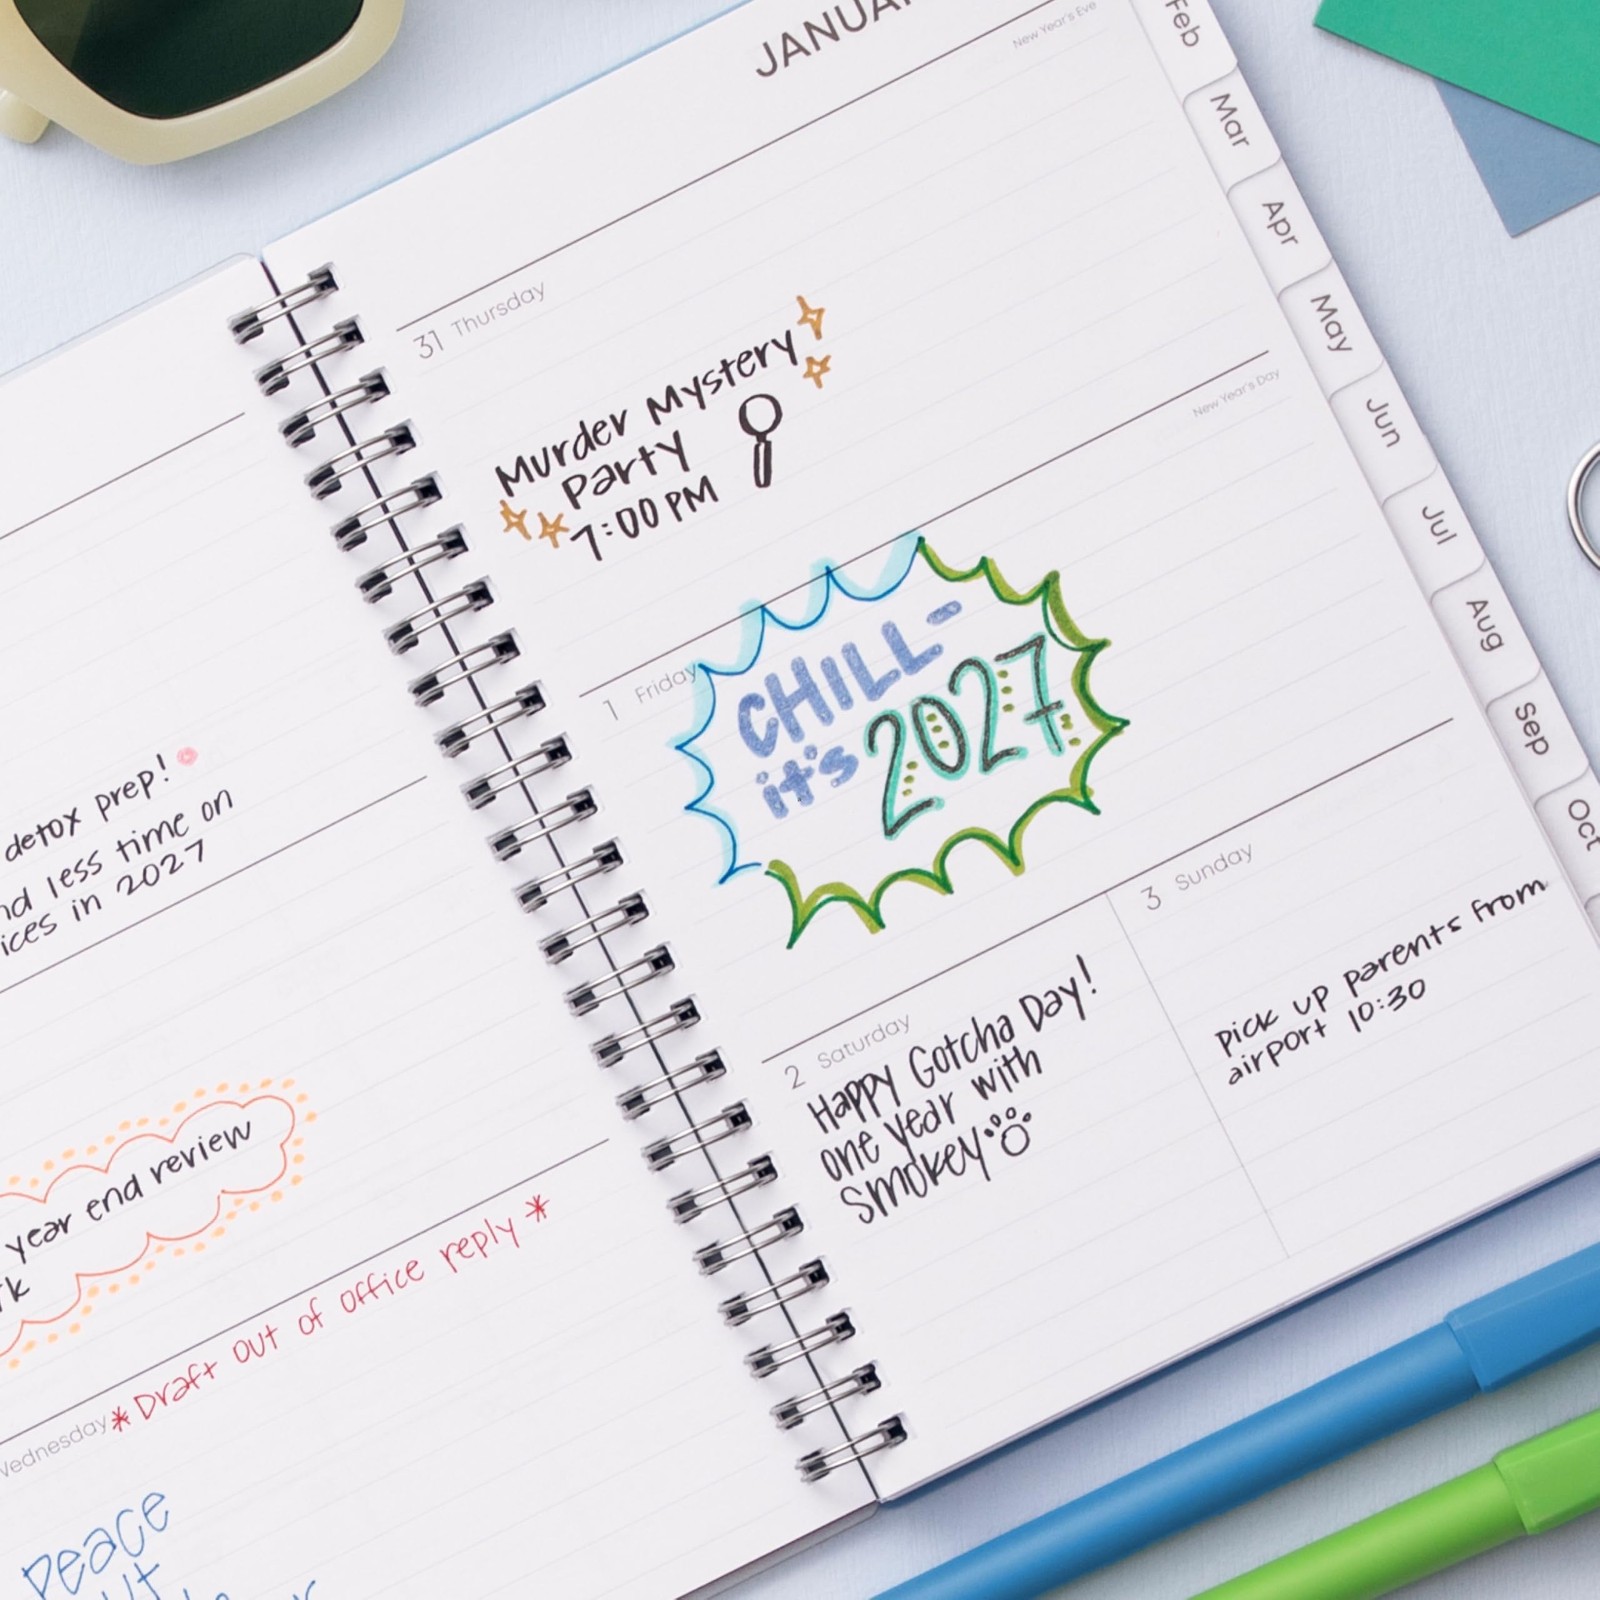 detox prep!
less time on
in 2027
year end review
*Draft out of office reply*
Peace
JANUA
New Year's Eve
31 Thursday
Murder Mystery
Party
7:00 PM
New Year's Day
1 Friday
CHILL-
it's 2027
2 Saturday
Happy Gotcha Day!
one year with
Smokey
3 Sunday
Pick up parents from
airport 10:30
Feb
Mar
Apr
May
Jun
Jul
Aug
Sep
Oct